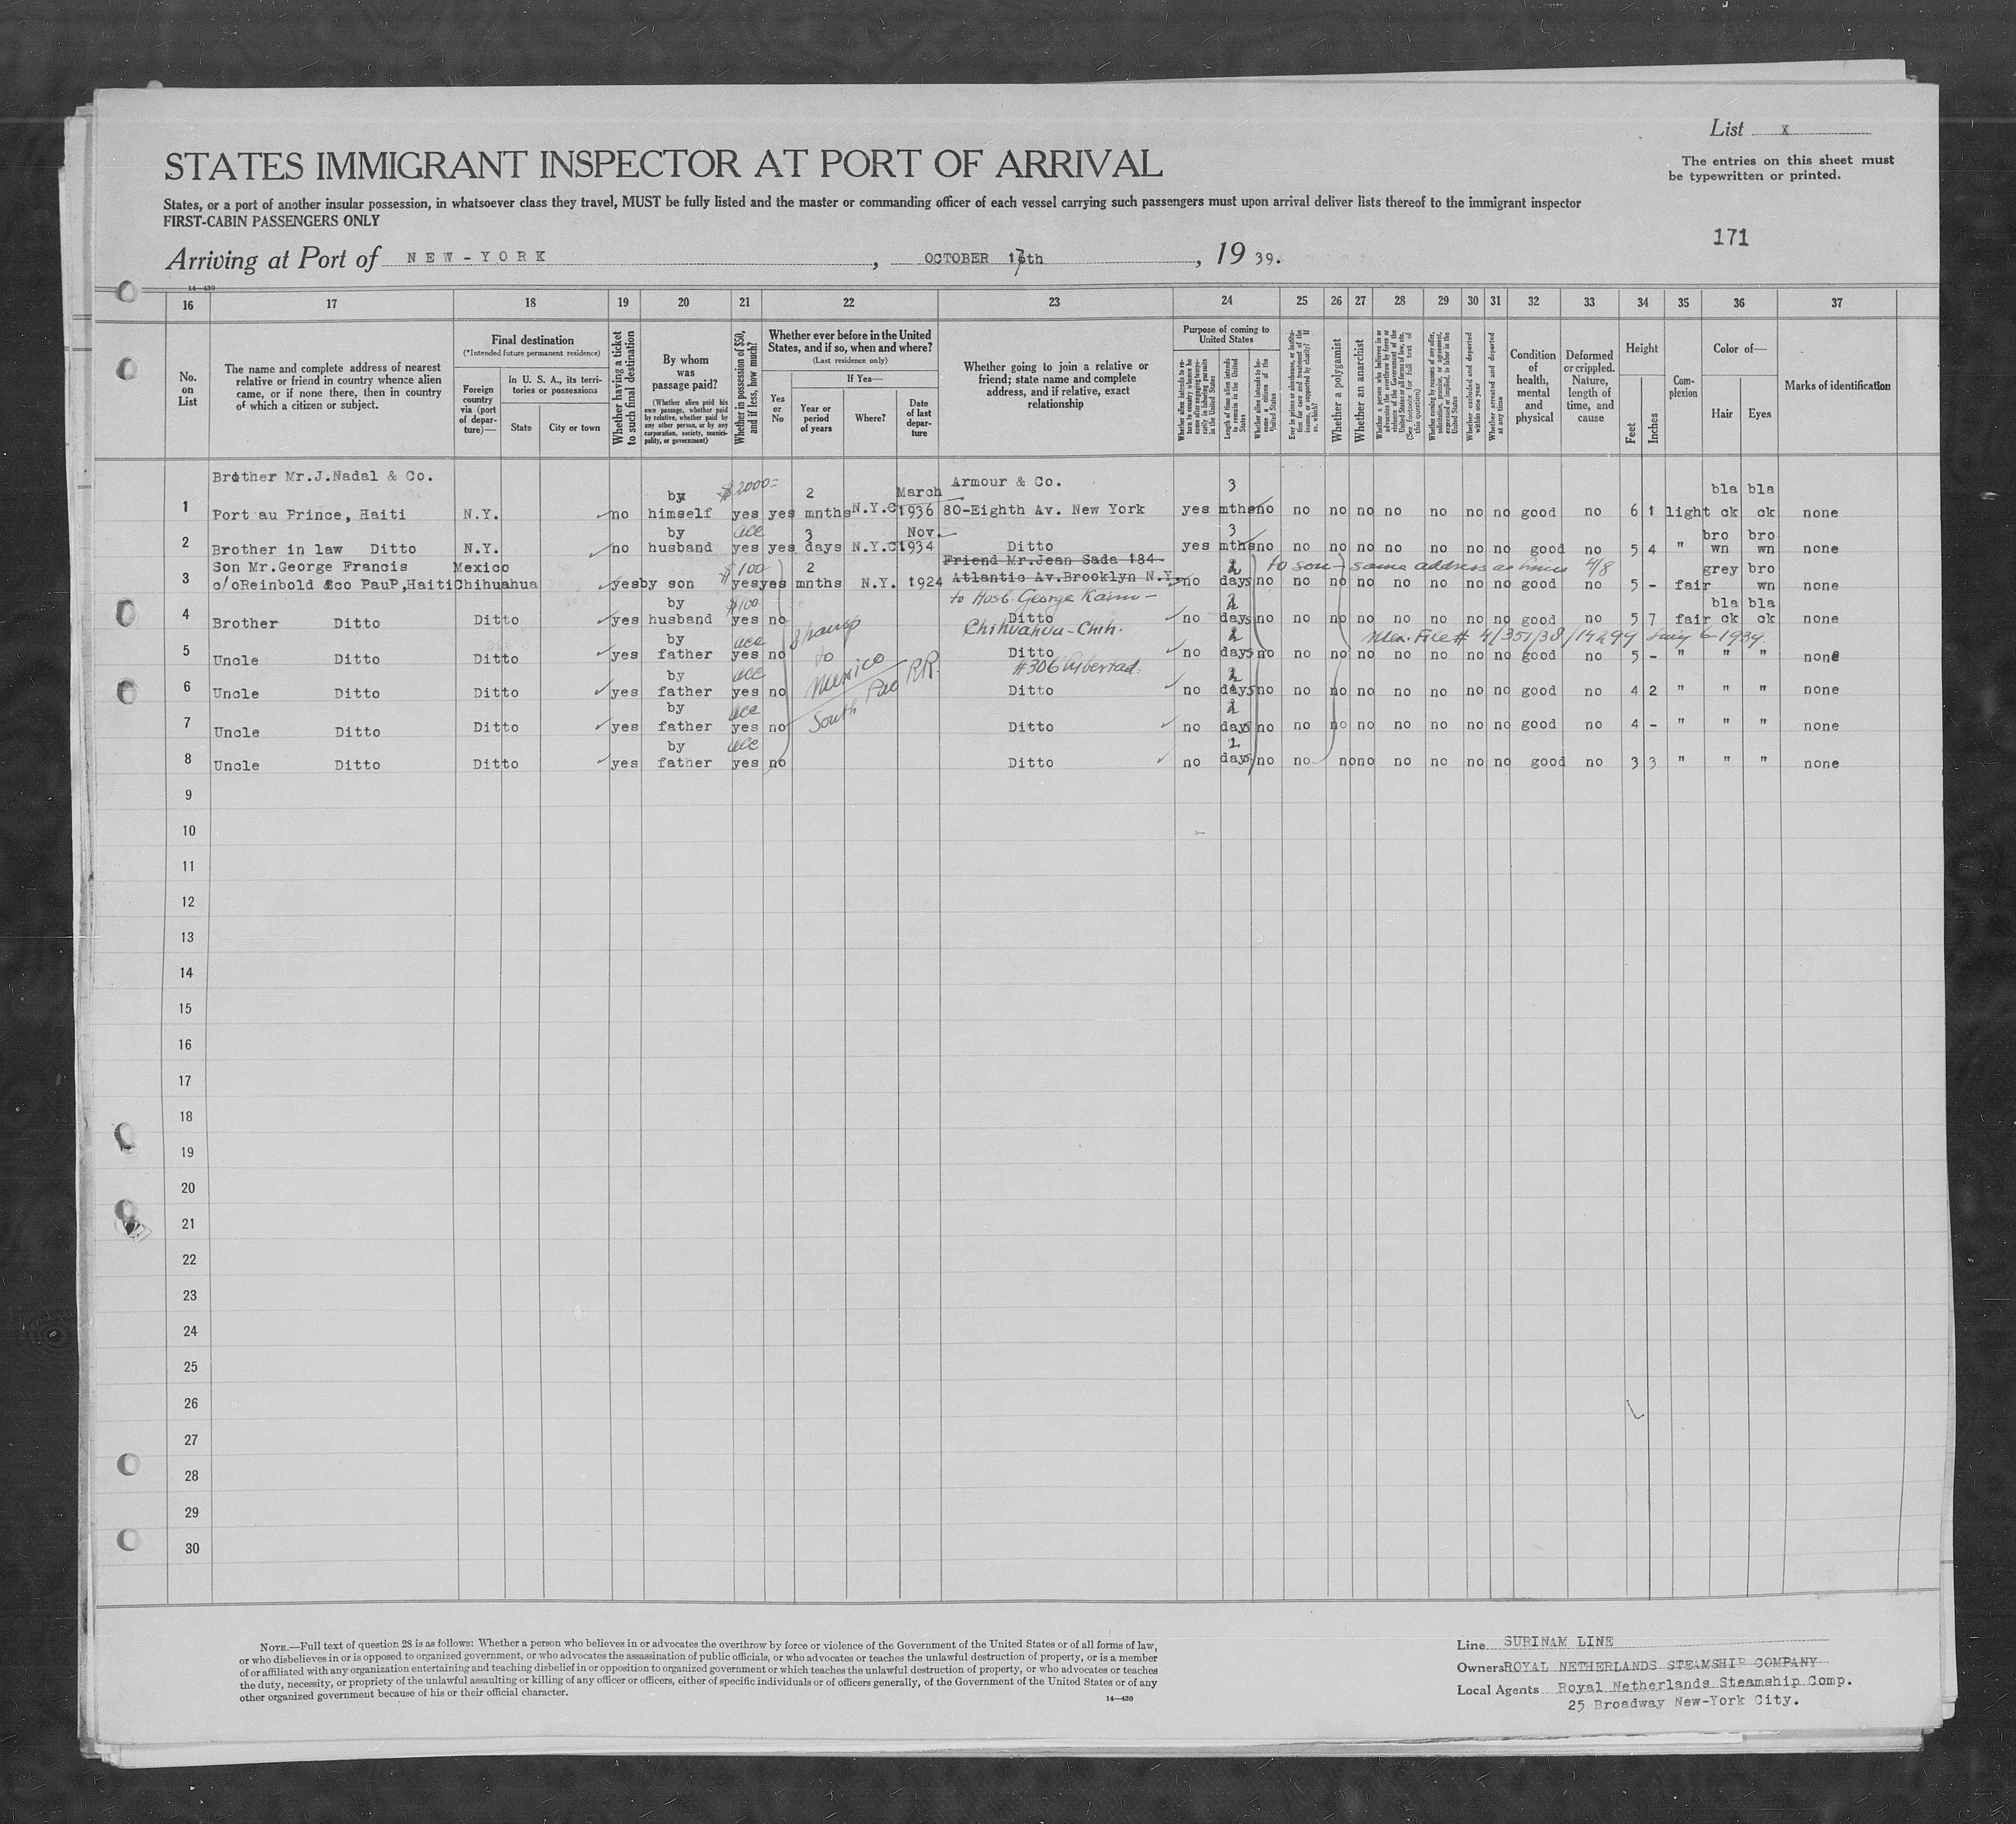 List x
The entries on this sheet must
be typewritten or printed.
STATES IMMIGRANT INSPECTOR AT PORT OF ARRIVAL
States, or a port of another insular possession, in whatsoever class they travel, MUST be fully listed and the master or commanding officer of each vessel carrying such passengers must upon arrival deliver lists thereof to the immigrant inspector
FIRST-CABIN PASSENGERS ONLY
171
Arriving at Port of NEW-YORK, OCTOBER 17th, 19 39.
14-430
16 17 18 19 20 21 22 23 24 25 26 27 28 29 30 31 32 33 34 35 36 37
No. on List
The name and complete address of nearest relative or friend in country whence alien came, or if none there, then in country of which a citizen or subject.
Final destination
(*Intended future permanent residence)
Foreign country via (port of departure)—
In U. S. A., its territories or possessions
State
City or town
Whether having a ticket to such final destination
By whom was passage paid?
(Whether alien paid his own passage, whether paid by relative, whether paid by any other person, or by any corporation, society, municipality, or government)
Whether in possession of $50, and if less, how much?
Whether ever before in the United States, and if so, when and where?
(Last residence only)
Yes or No
If Yes—
Year or period of years
Where?
Date of last departure
Whether going to join a relative or friend; state name and complete address, and if relative, exact relationship
Purpose of coming to United States
Length of time alien intends to remain in the United States
Whether alien intends to become a citizen of the United States
Whether a polygamist
Whether an anarchist
Whether excluded and deported within one year
Whether arrested and deported at any time
Condition of health, mental and physical
Deformed or crippled. Nature, length of time, and cause
Height
Feet
Inches
Complexion
Color of—
Hair
Eyes
Marks of identification
Brother Mr.J.Nadal & Co. $2000= Armour & Co.
1 Port au Prince, Haiti N.Y. no by himself yes yes 2 mnths N.Y.C March 1936 80-Eighth Av. New York yes 3 mths no no no no no no no no good no 6 1 light black black none
2 Brother in law Ditto N.Y. no by husband acc yes yes 3 days N.Y.C Nov. 1934 Ditto yes 3 mths no no no no no no no no good no 5 4 " brown brown none
Son Mr.George Francis Mexico $100 Friend Mr.Jean Sada 184-
3 c/oReinbold &co PauP,Haiti Chihuahua yes by son yes yes 2 mnths N.Y. 1924 Atlantic Av.Brooklyn N.Y. no 2 days no no no no no no no no good no 5 - fair grey brown none
to son - same address as lines 4/8
to Husb. George
4 Brother Ditto Ditto yes by husband $100 yes no Ditto no 2 days no no no no no no no no good no 5 7 fair black black none
Chihuahua-Chih.
Mex. File # 4/351/38/ 1939.
5 Uncle Ditto Ditto yes by father acc yes no Ditto no 2 days no no no no no no no no good no 5 - " " " none
#306 Libertad.
6 Uncle Ditto Ditto yes by father acc yes no Ditto no 2 days no no no no no no no no good no 4 2 " " " none
to
Mexico
South Pac RR.
7 Uncle Ditto Ditto yes by father acc yes no Ditto no 2 days no no no no no no no no good no 4 - " " " none
8 Uncle Ditto Ditto yes by father acc yes no Ditto no 2 days no no no no no no no no good no 3 3 " " " none
9
10
11
12
13
14
15
16
17
18
19
20
21
22
23
24
25
26
27
28
29
30
NOTE.—Full text of question 28 is as follows: Whether a person who believes in or advocates the overthrow by force or violence of the Government of the United States or of all forms of law,
or who disbelieves in or is opposed to organized government, or who advocates the assassination of public officials, or who advocates or teaches the unlawful destruction of property, or is a member
of or affiliated with any organization entertaining and teaching disbelief in or opposition to organized government or which teaches the unlawful destruction of property, or who advocates or teaches
the duty, necessity, or propriety of the unlawful assaulting or killing of any officer or officers, either of specific individuals or of officers generally, of the Government of the United States or of any
other organized government because of his or their official character.
14—430
Line SURINAM LINE
Owners ROYAL NETHERLANDS STEAMSHIP COMPANY
Local Agents Royal Netherlands Steamship Comp.
25 Broadway New-York City.